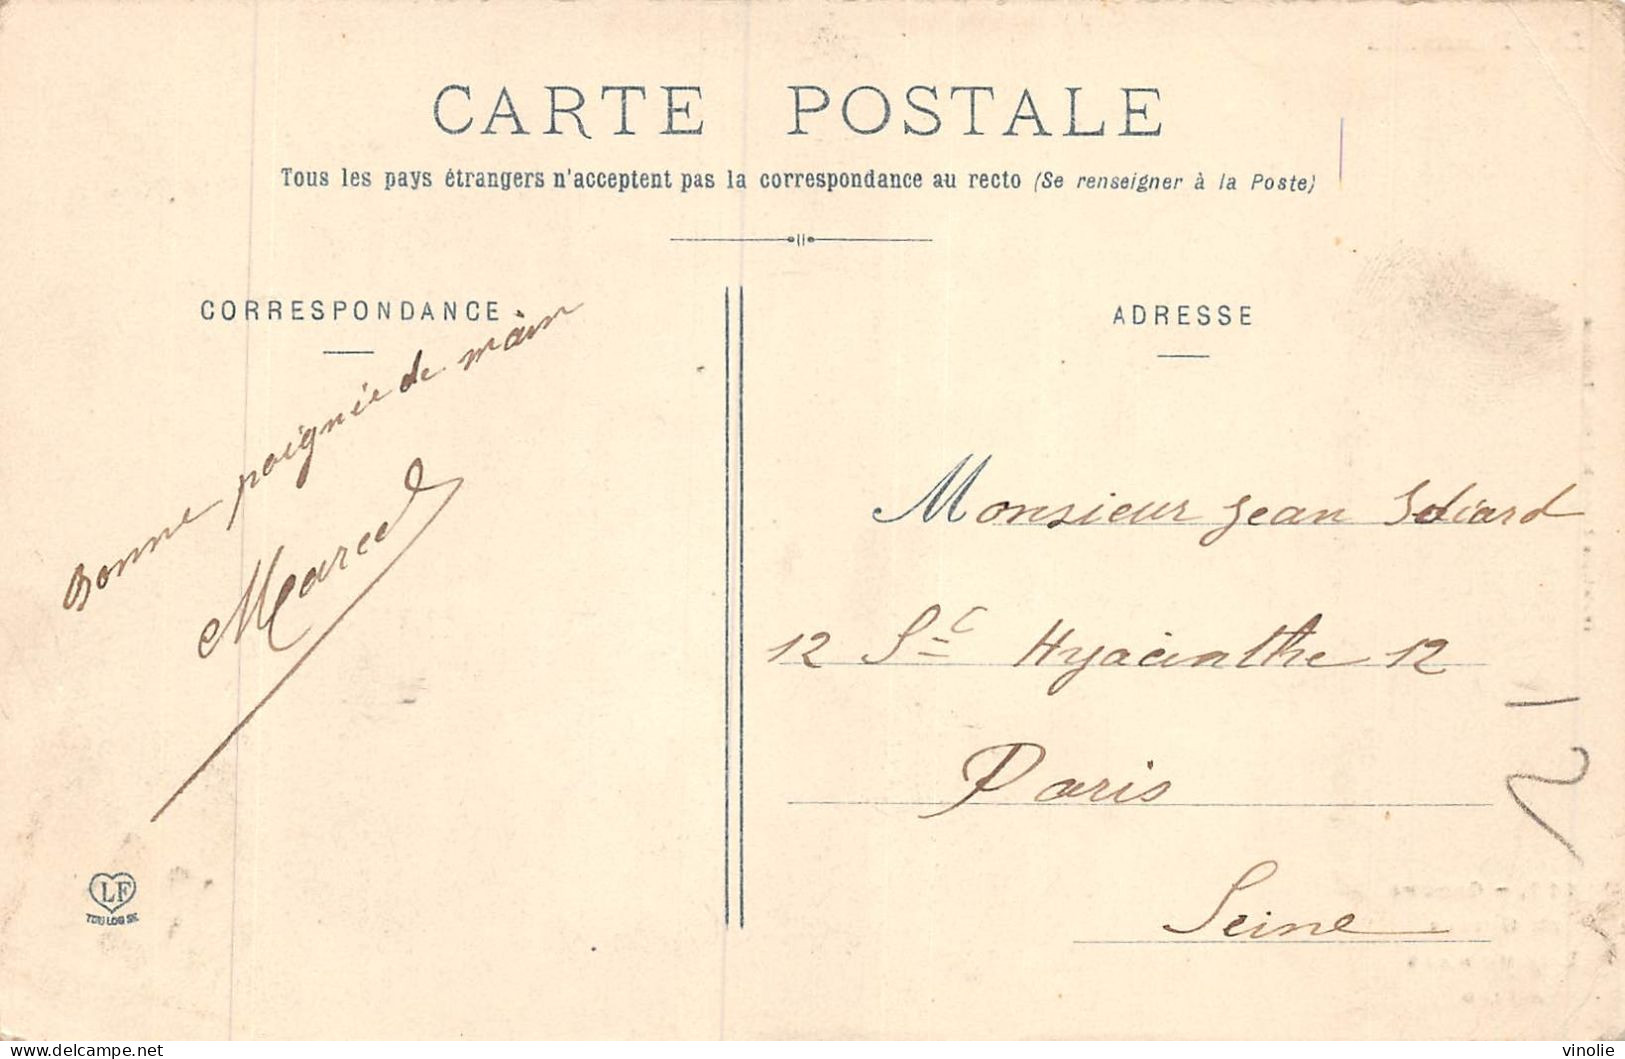 CARTE POSTALE
Tous les pays étrangers n'acceptent pas la correspondance au recto (Se renseigner à la Poste)
CORRESPONDANCE
Bonne poignée de main
Marcel
LF
TOULOUSE
ADRESSE
Monsieur Jean
12 St Hyacinthe 12
Paris
Seine
delcampe.net
vinolie